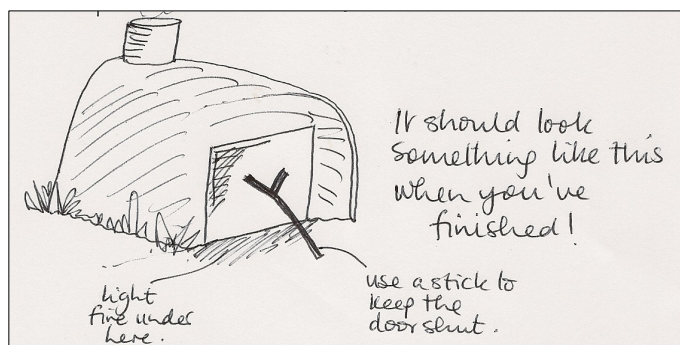 It should look
something like this
when you've
finished!
light
fire under
here.
use a stick to
keep the
door shut.